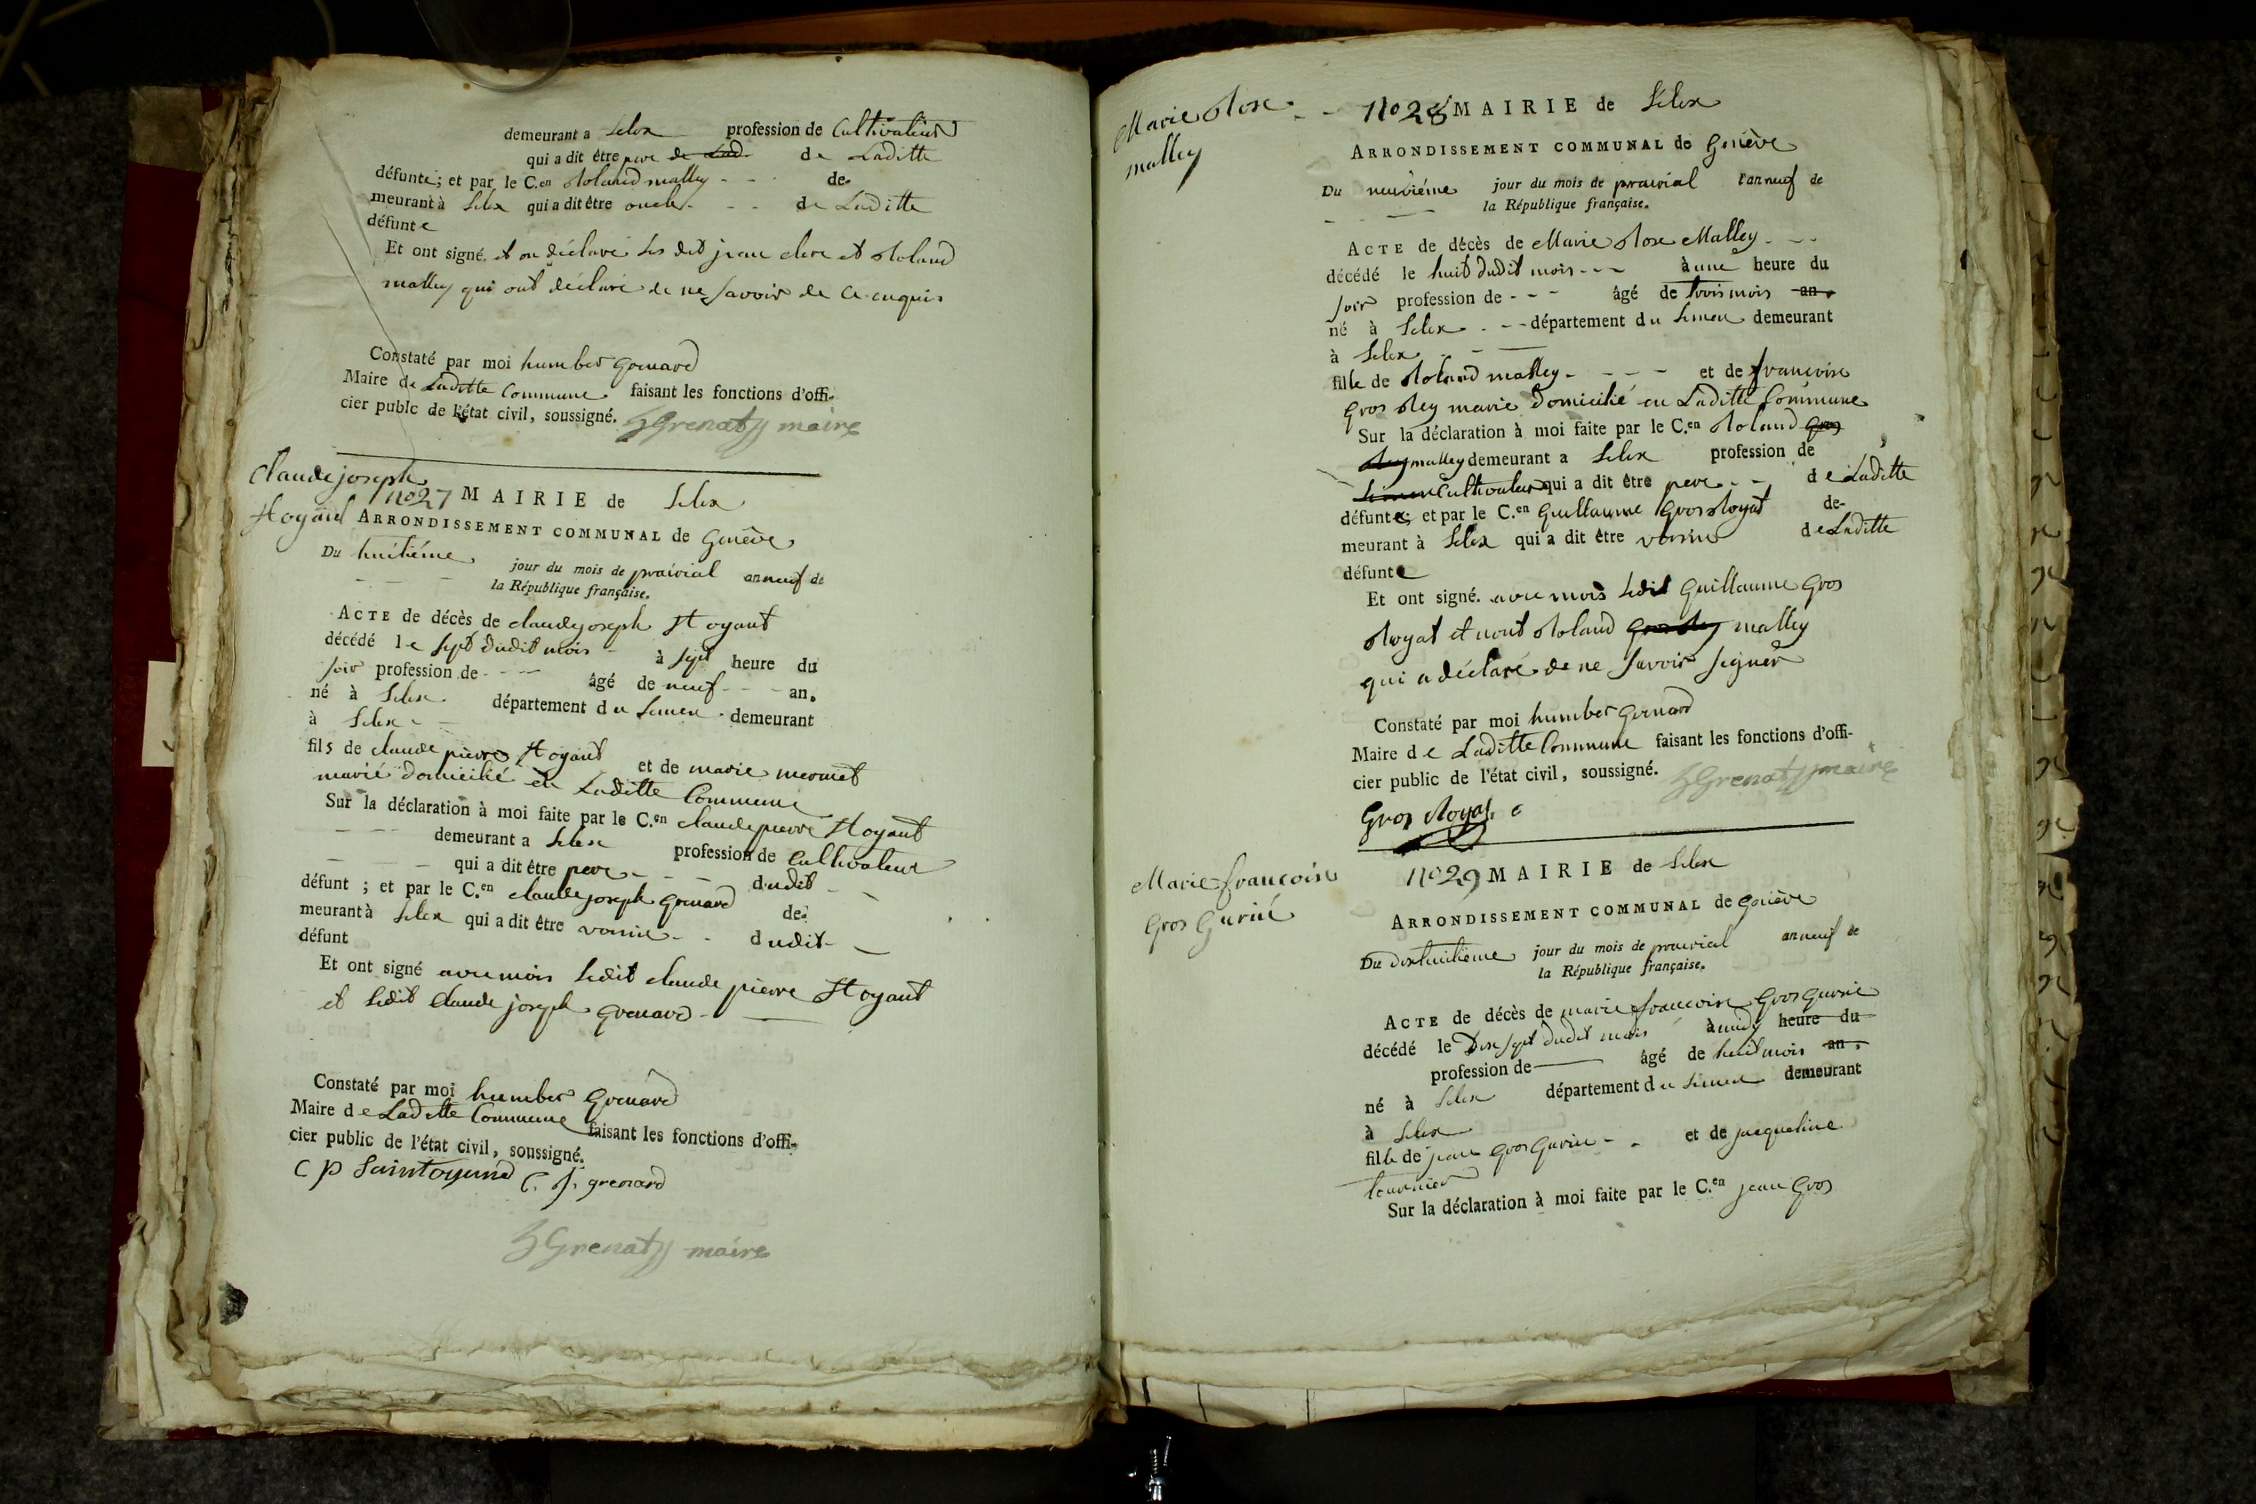 demeurant a Lelex profession de Cultivateur
qui a dit être pere de Lad. de Laditte
défunte; et par le C.en Roland malley - - - de-
meurant à Lelex qui a dit être oncle - - - de Laditte
défunte
Et ont signé. et on déclaré les dit jean clere et Roland
malley qui ont déclaré de ne savoir de ce enquis
Constaté par moi humber grenard
Maire de Laditte Commune faisant les fonctions d'offi-
cier public de l'état civil, soussigné. h Grenard maire
Claude joseph
No 27 MAIRIE de Lelex
ARRONDISSEMENT COMMUNAL de Genève
Du huitiéme jour du mois de prairial an neuf de
la République française.
ACTE de décès de claude joseph St oyant
décédé le sept dudit mois - à sept heure du
soir profession de - - - âgé de neuf - - - an.
né à Lelex département du Leman - demeurant
à Lelex - -
fils de claude pierre St oyant et de marie mermet
marié domicilié en Laditte Commune
Sur la déclaration à moi faite par le C.en claude pierre St oyant
- - - demeurant a Lelex profession de Cultivateur
- - - qui a dit être pere - - - dudit - -
défunt ; et par le C.en claude joseph grenard de-
meurant à Lelex qui a dit être voisin - - dudit - -
défunt
Et ont signé avec mois ledit claude pierre St oyant
et ledit Claude joseph grenard - —
Constaté par moi humber grenard
Maire de Laditte Commune faisant les fonctions d'offi-
cier public de l'état civil, soussigné.
C p Saintoyand C. J. grenard
h Grenard maire
Marie Rose - - No 28 MAIRIE de Lelex
malley
ARRONDISSEMENT COMMUNAL de Genève
Du neuviéme jour du mois de prairial l'an neuf de
la République française.
ACTE de décès de Marie Rose Malley - - -
décédé le huit dudit mois - - - à une heure du
soir profession de - - - âgé de trois mois an.
né à Lelex - - - département du Leman demeurant
à Lelex - —
fille de Roland malley - - - - et de françoise
gros Rey marié domicilié en Laditte Commune
Sur la déclaration à moi faite par le C.en Roland gros
Rey malley demeurant a Lelex profession de
Leman Cultivateur qui a dit être pere - - de Laditte
défunte; et par le C.en guillaume gros Royat de-
meurant à Lelex qui a dit être voisin de Laditte
défunte
Et ont signé. avec mois ledit guillaume gros
Royat et nont Roland gros Rey malley
qui a déclaré de ne savoir signer
Constaté par moi humber grenard
Maire de Laditte Commune faisant les fonctions d'offi-
cier public de l'état civil, soussigné. h Grenard maire
Gros Royat
Marie françoise
gros gurin
No 29 MAIRIE de Lelex
ARRONDISSEMENT COMMUNAL de Genève
Du dixhuitiéme jour du mois de prairial an neuf de
la République française.
ACTE de décès de marie françoise gros gurin
décédé le Dix sept dudit mois à midy heure du
profession de — âgé de huit mois an.
né à Lelex département du Leman demeurant
à Lelex
fille de jean gros gurin - - et de jacqueline
tournier
Sur la déclaration à moi faite par le C.en jean gros